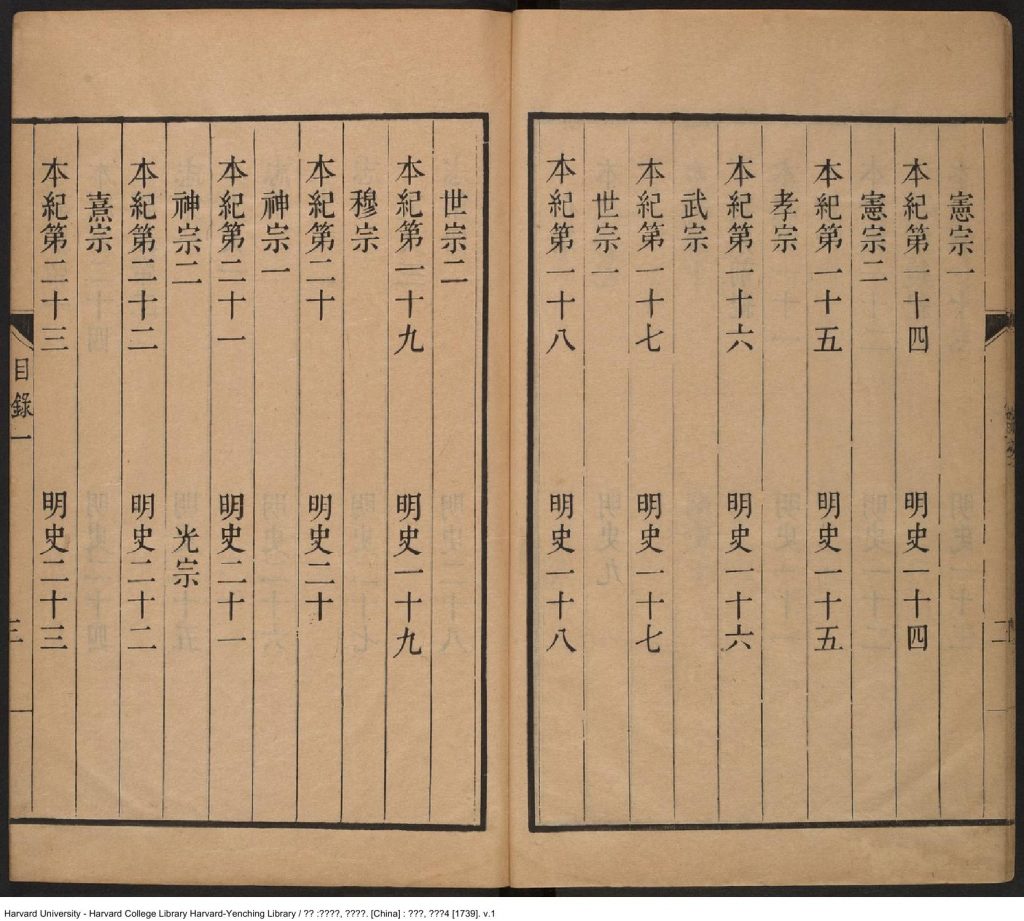 憲宗一
本紀第一十四 明史一十四
憲宗二
本紀第一十五 明史一十五
孝宗
本紀第一十六 明史一十六
武宗
本紀第一十七 明史一十七
世宗一
本紀第一十八 明史一十八
世宗二
本紀第一十九 明史一十九
穆宗
本紀第二十 明史二十
神宗一
本紀第二十一 明史二十一
神宗二 光宗
本紀第二十二 明史二十二
熹宗
本紀第二十三 明史二十三
目錄一
三
二
Harvard University - Harvard College Library Harvard-Yenching Library / ?? :????, ????. [China] : ???, ???4 [1739]. v.1